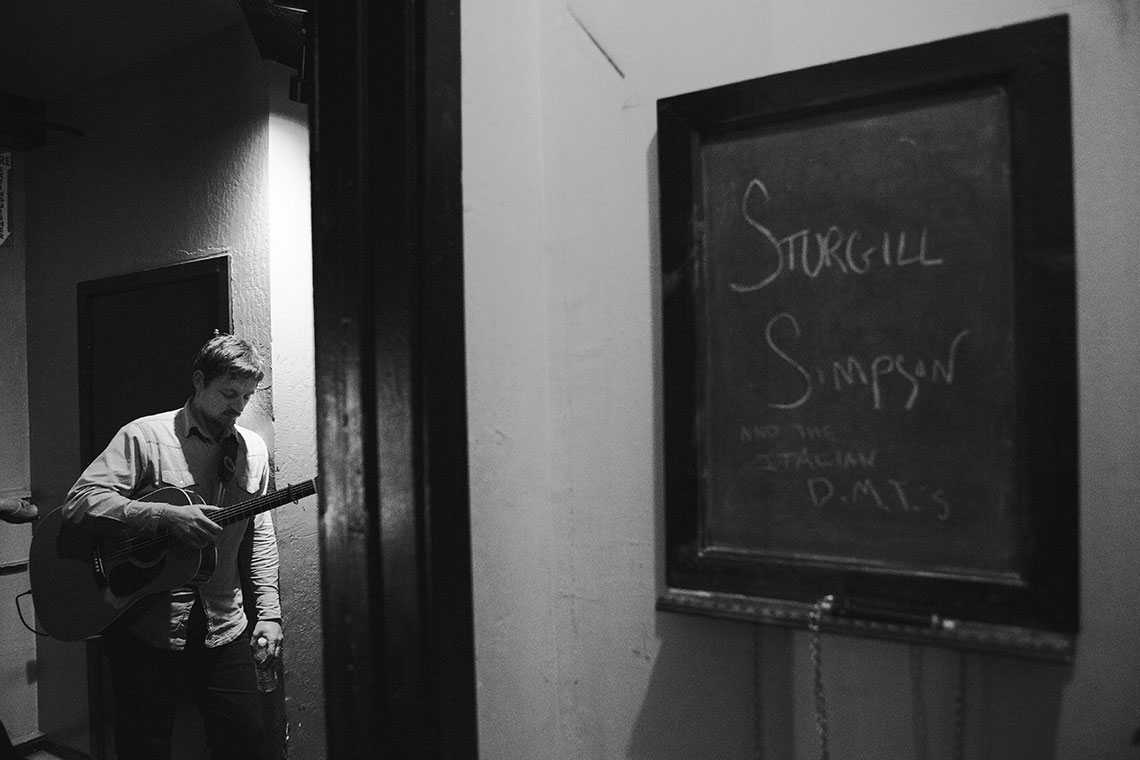 STURGILL
SIMPSON
AND THE
ITALIAN
D.M.T.'s